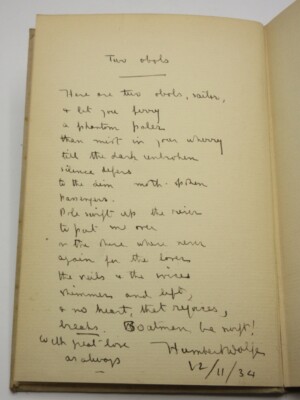 Two obols
Here are two obols, sailor,
& let you ferry
a phantom paler
than mist in your wherry
till the dark unbroken
silence defers
to the dim moth-spoken
passengers.
Pole swift up the river
to put me over
on the shore where never
again for the lover
the veils & the voices
shimmers and lift,
& no heart, that rejoices,
breaks. Boatman, be swift!
With great love
as always
Humbert Wolfe
12/11/34